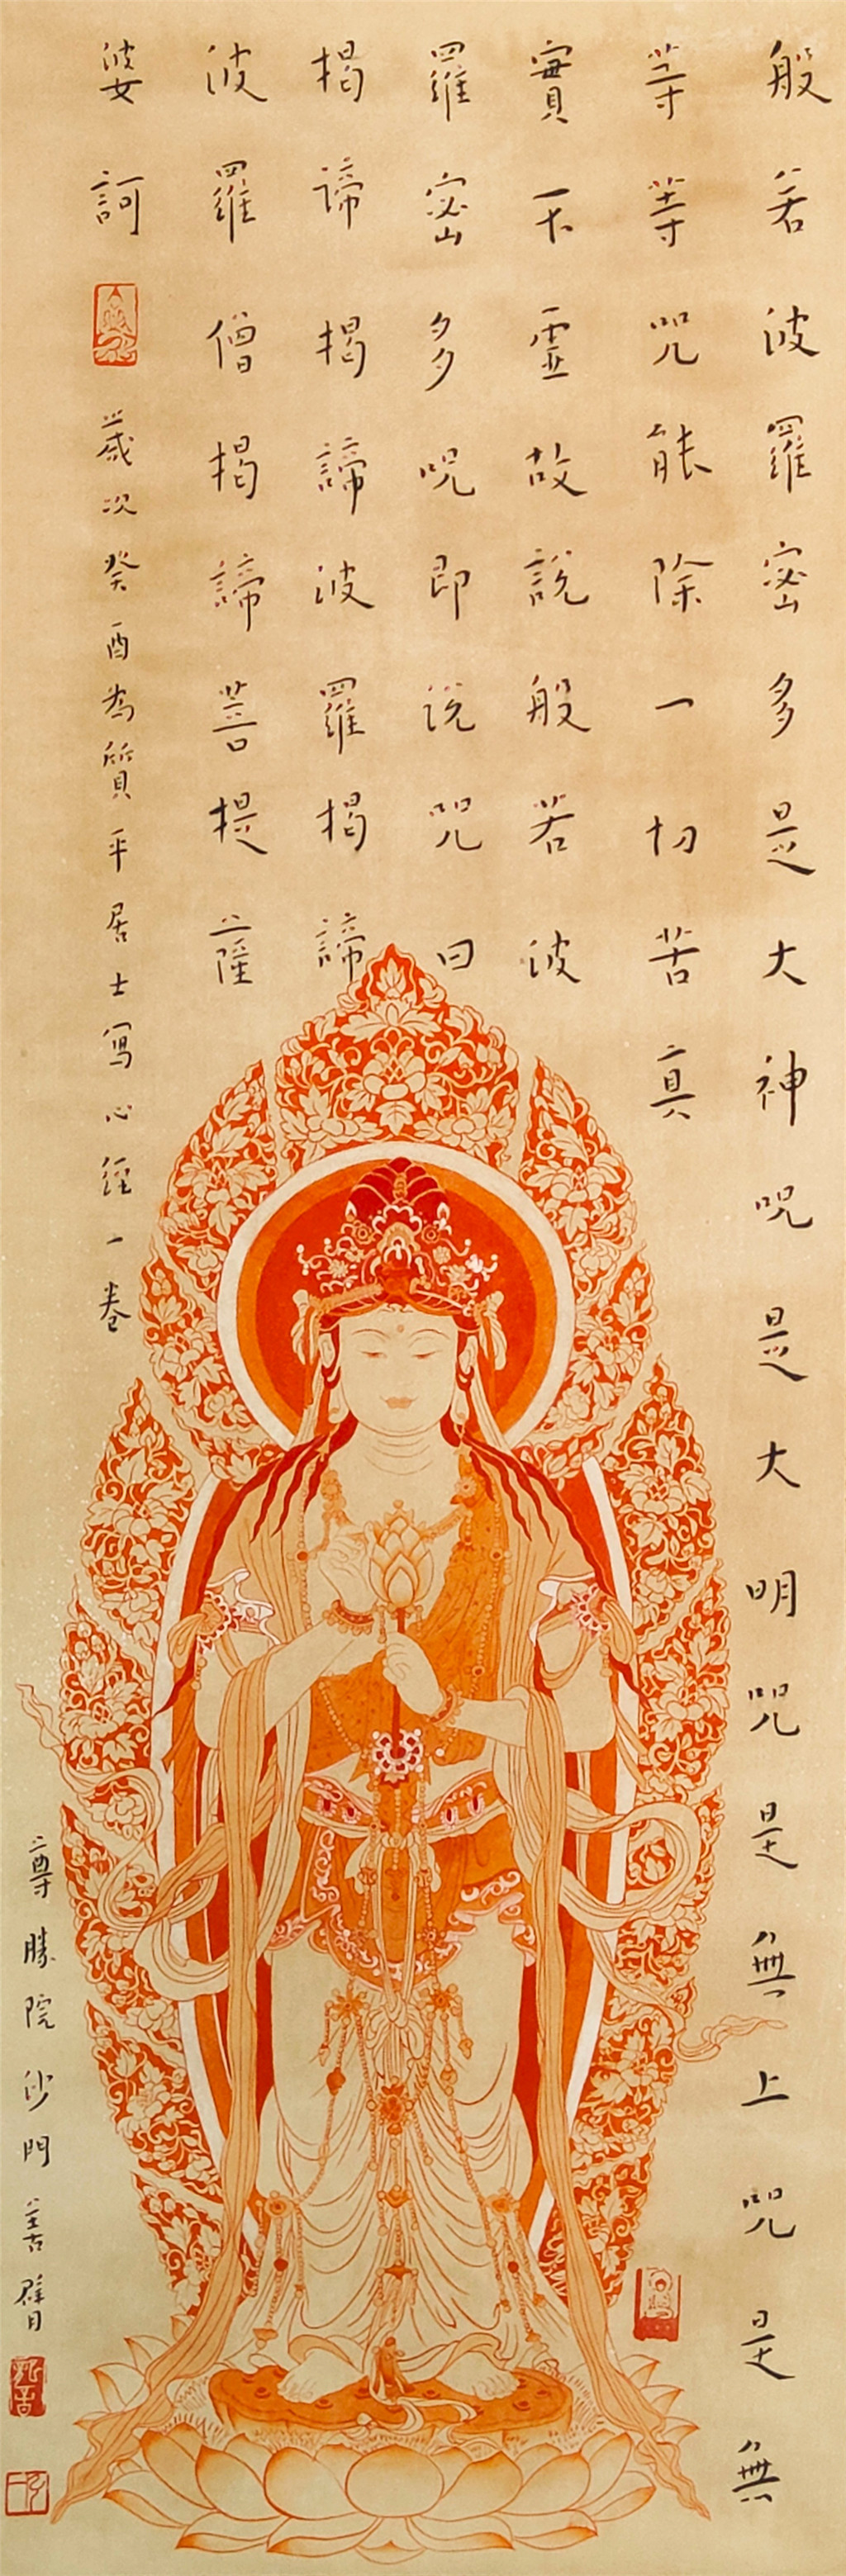 般若波羅密多是大神咒是大明咒是無上咒是無
等等咒能除一切苦真
實不虛故說般若波
羅密多咒即說咒曰
揭諦揭諦波羅揭諦
波羅僧揭諦菩提薩
婆訶
歲次癸酉為質平居士寫心經一卷
尊勝院沙門善臂